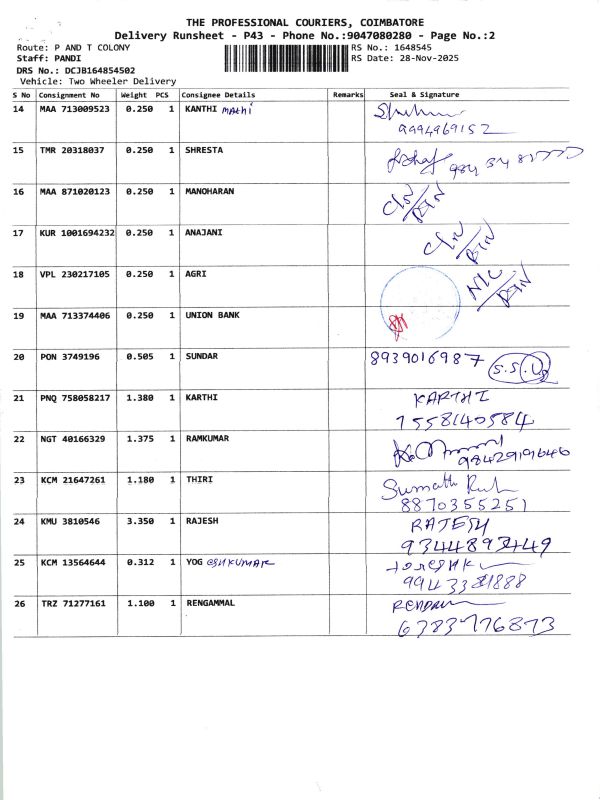 THE PROFESSIONAL COURIERS, COIMBATORE
Delivery Runsheet - P43 - Phone No.:9047080280 - Page No.:2
Route: P AND T COLONY RS No.: 1648545
Staff: PANDI RS Date: 28-Nov-2025
DRS No.: DCJB164854502
Vehicle: Two Wheeler Delivery
S No Consignment No Weight PCS Consignee Details Remarks Seal & Signature
14 MAA 713009523 0.250 1 KANTHI MATHI
9994969152
15 TMR 20318037 0.250 1 SHRESTA
16 MAA 871020123 0.250 1 MANOHARAN
17 KUR 1001694232 0.250 1 ANAJANI
18 VPL 230217105 0.250 1 AGRI
19 MAA 713374406 0.250 1 UNION BANK
20 PON 3749196 0.505 1 SUNDAR 8939016987
21 PNQ 758058217 1.380 1 KARTHI KARTHI
7558140584
22 NGT 40166329 1.375 1 RAMKUMAR
9842919646
23 KCM 21647261 1.180 1 THIRI
8870355251
24 KMU 3810546 3.350 1 RAJESH RAJESH
9344893449
25 KCM 13564644 0.312 1 YOG ESHKUMAR
9943381888
26 TRZ 71277161 1.100 1 RENGAMMAL
6383776873